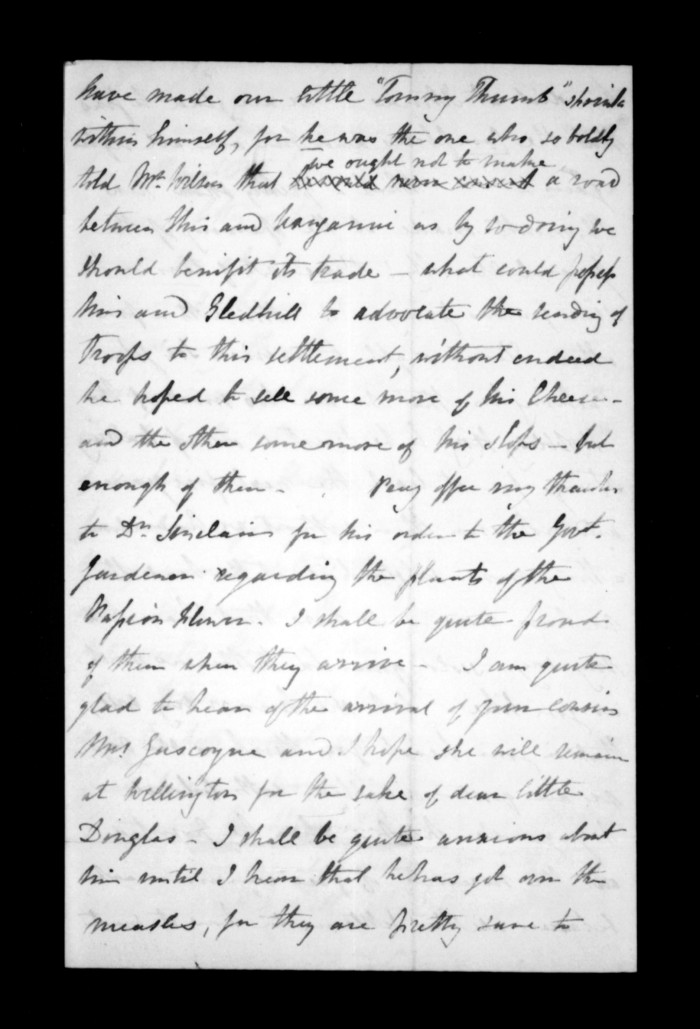 have made our little "Tommy Thumb" shrink
within himself, for he was the one who so boldly
we ought not to make
told Mr. Wilson that a road
between this and Wanganui as by so doing we
should benifit its trade - what could possess
him and Gledhill to advocate the sending of
Troops to this settlement, without indeed
he hoped to sell some more of his Cheese -
and the other some more of his slops - but
enough of them - Pray offer my thanks
to Dr. Sinclair for his order to the Govt.
Gardener regarding the plants of the
Passion Flower. I shall be quite proud
of them when they arrive - I am quite
glad to hear of the arrival of your Cousin
Mrs. Gascoyne and I hope she will remain
at Wellington for the sake of dear little
Douglas - I shall be quite anxious about
him until I hear that he has got over the
measles, for they are pretty sure to